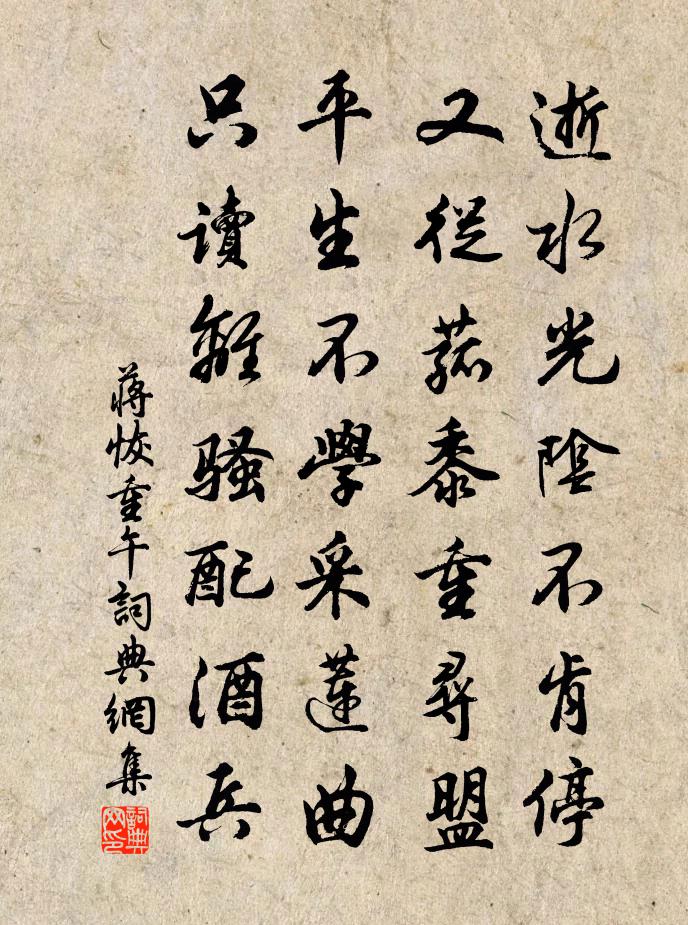 逝水光陰不肯停
又從菰黍重尋盟
平生不學采蓮曲
只讀離騷配酒兵
蔣恢重午詞典網集
詞典網印